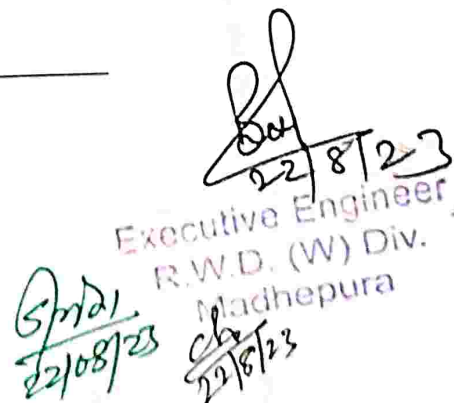 22/8/23
Executive Engineer
R.W.D. (W) Div.
Madhepura
22/08/23
22/8/23